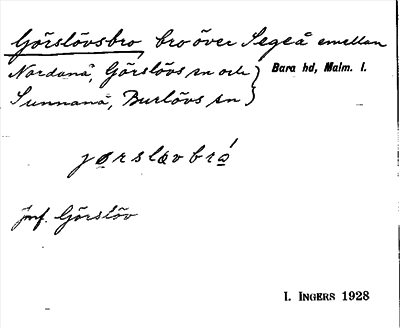 Görslövsbro, bro över Segeå emellan
Nordanå, Görslövs sn och } Bara hd, Malm. l.
Sunnanå, Burlövs sn }
jørslǝvbro̱ʹ
jmf. Görslöv
I. INGERS 1928